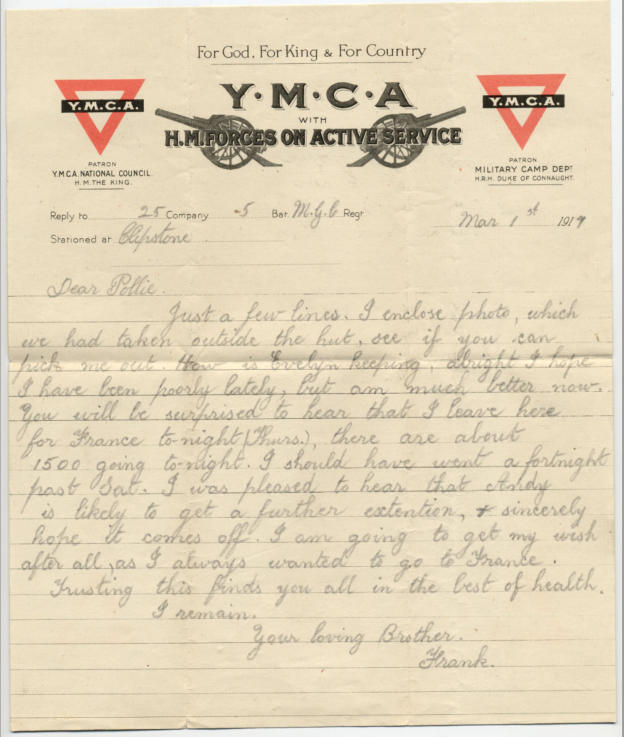 For God, For King & For Country
Y.M.C.A.
Y·M·C·A
Y.M.C.A.
WITH
H.M. FORCES ON ACTIVE SERVICE
PATRON
Y.M.C.A. NATIONAL COUNCIL.
H.M. THE KING.
PATRON
MILITARY CAMP DEPT
H.R.H. DUKE OF CONNAUGHT.
Reply to 25 Company -5 Bat. M.G.C Regt.
Mar 1st 1917
Stationed at Clipstone
Dear Pollie.
Just a few lines. I enclose photo, which
we had taken outside the hut, see if you can
pick me out. How is Evelyn keeping, alright I hope
I have been poorly lately, but am much better now.
You will be surprised to hear that I leave here
for France to-night (Thurs.), there are about
1500 going to-night. I should have went a fortnight
past Sat. I was pleased to hear that Andy
is likely to get a further extention, & sincerely
hope it comes off. I am going to get my wish
after all, as I always wanted to go to France.
Trusting this finds you all in the best of health.
I remain.
Your loving Brother.
Frank.